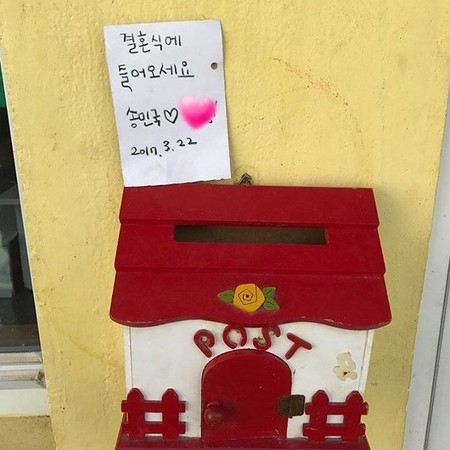 결혼식에
들어오세요
송민국♡
2017. 3. 22
POST